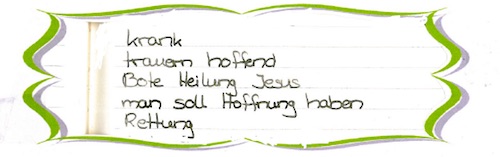 krank
trauern hoffend
Bote Heilung Jesus
man soll Hoffnung haben
Rettung